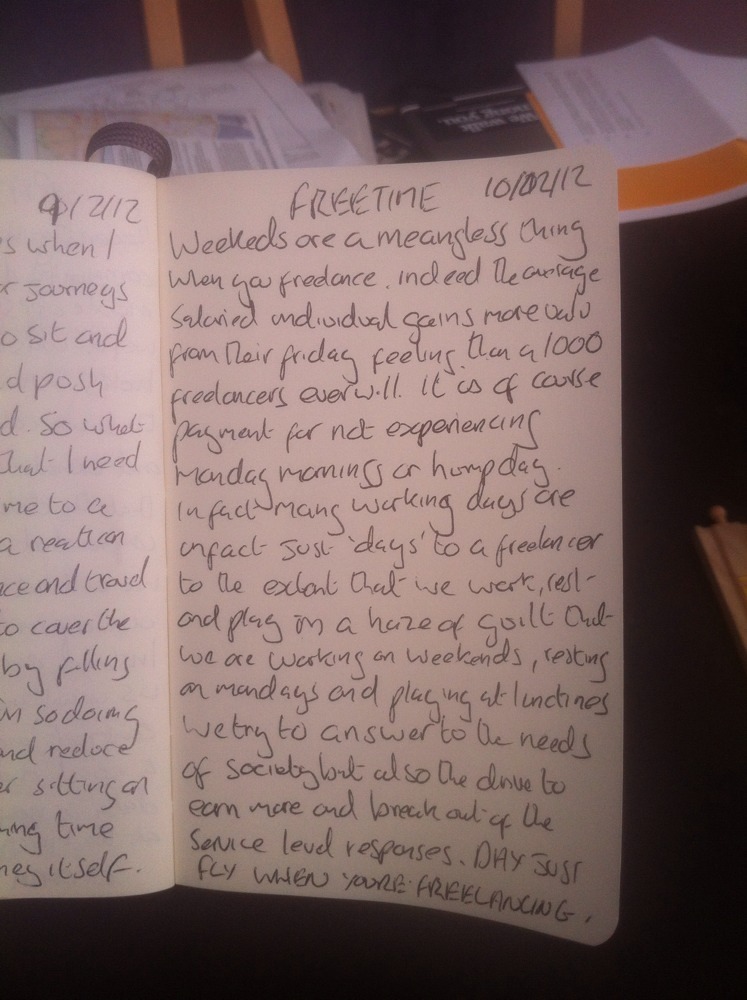 We walk
among you.
9/2/12
s when I
r journeys
o sit and
d posh
d. So what
that I need
me to a
a reation
nce and travel
to cover the
by filling
in so doing
and reduce
er sitting on
ing time
ney itself.
FREETIME 10/02/12
Weekeds are a meangless thing
when you freelance. indeed the average
salaried individual gains more valu
from their friday feeling than a 1000
freelancers ever will. It is of course
payment for not experiencing
monday mornings or hump day.
In fact many working days are
infact just 'days' to a freelancer
to the extent that we work, rest
and play in a haze of guilt that
we are working on weekends, resting
on mondays and playing at lunctimes
we try to answer to the needs
of society but also the drive to
earn more and break out of the
service level responses. DAY JUST
FLY WHEN YOU'RE FREELANCING.